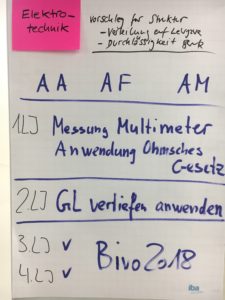 Elektro-
technik
Vorschlag für Struktur
- Verteilung auf Lehrjahre
- Durchlässigkeit
AA AF AM
1LJ Messung Multimeter
Anwendung Ohmsches
Gesetz
2LJ GL vertiefen anwenden
3LJ ✓
4LJ ✓
Bivo2018
iba